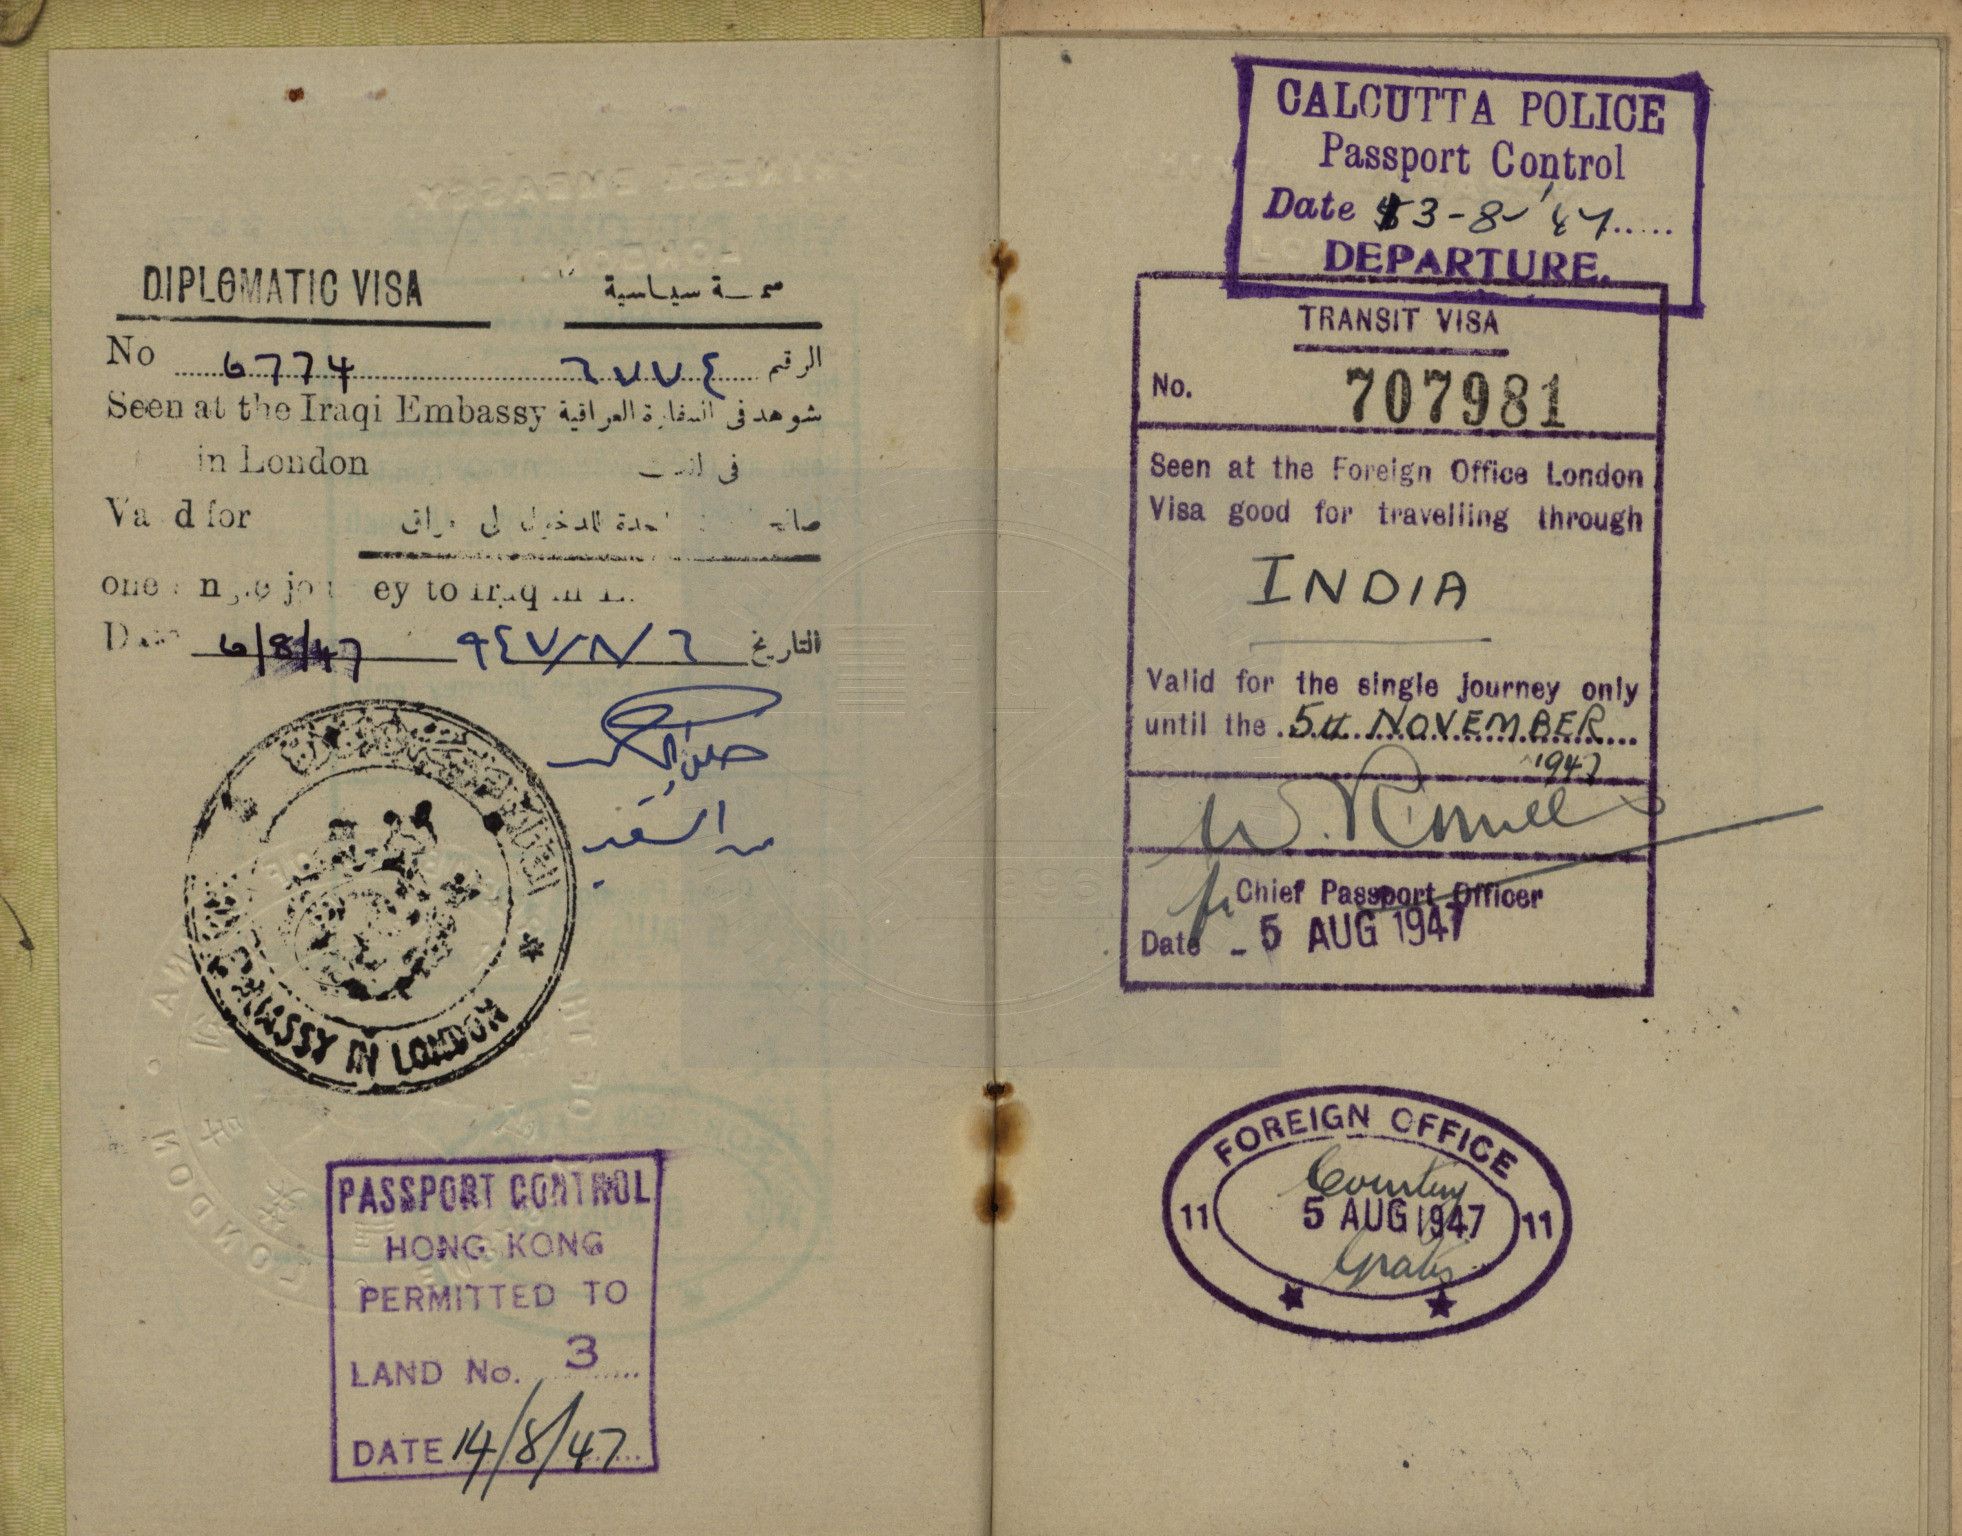 DIPLOMATIC VISA سمة سياسية
No 6774 ٦٧٧٤ الرقم
Seen at the Iraqi Embassy شوهد في السفارة العراقية
in London في
Valid for
one single journey to Iraq in
Date 6/8/47 ٩٤٧/٨/٦ التاريخ
EMBASSY IN LONDON
PASSPORT CONTROL
HONG KONG
PERMITTED TO
LAND No. 3
DATE 14/8/47
CALCUTTA POLICE
Passport Control
Date 13-8-'47
DEPARTURE.
TRANSIT VISA
No. 707981
Seen at the Foreign Office London
Visa good for travelling through
INDIA
Valid for the single journey only
until the 5th NOVEMBER
1947
Chief Passport Officer
Date - 5 AUG 1947
FOREIGN OFFICE
11 5 AUG 1947 11
Gratis